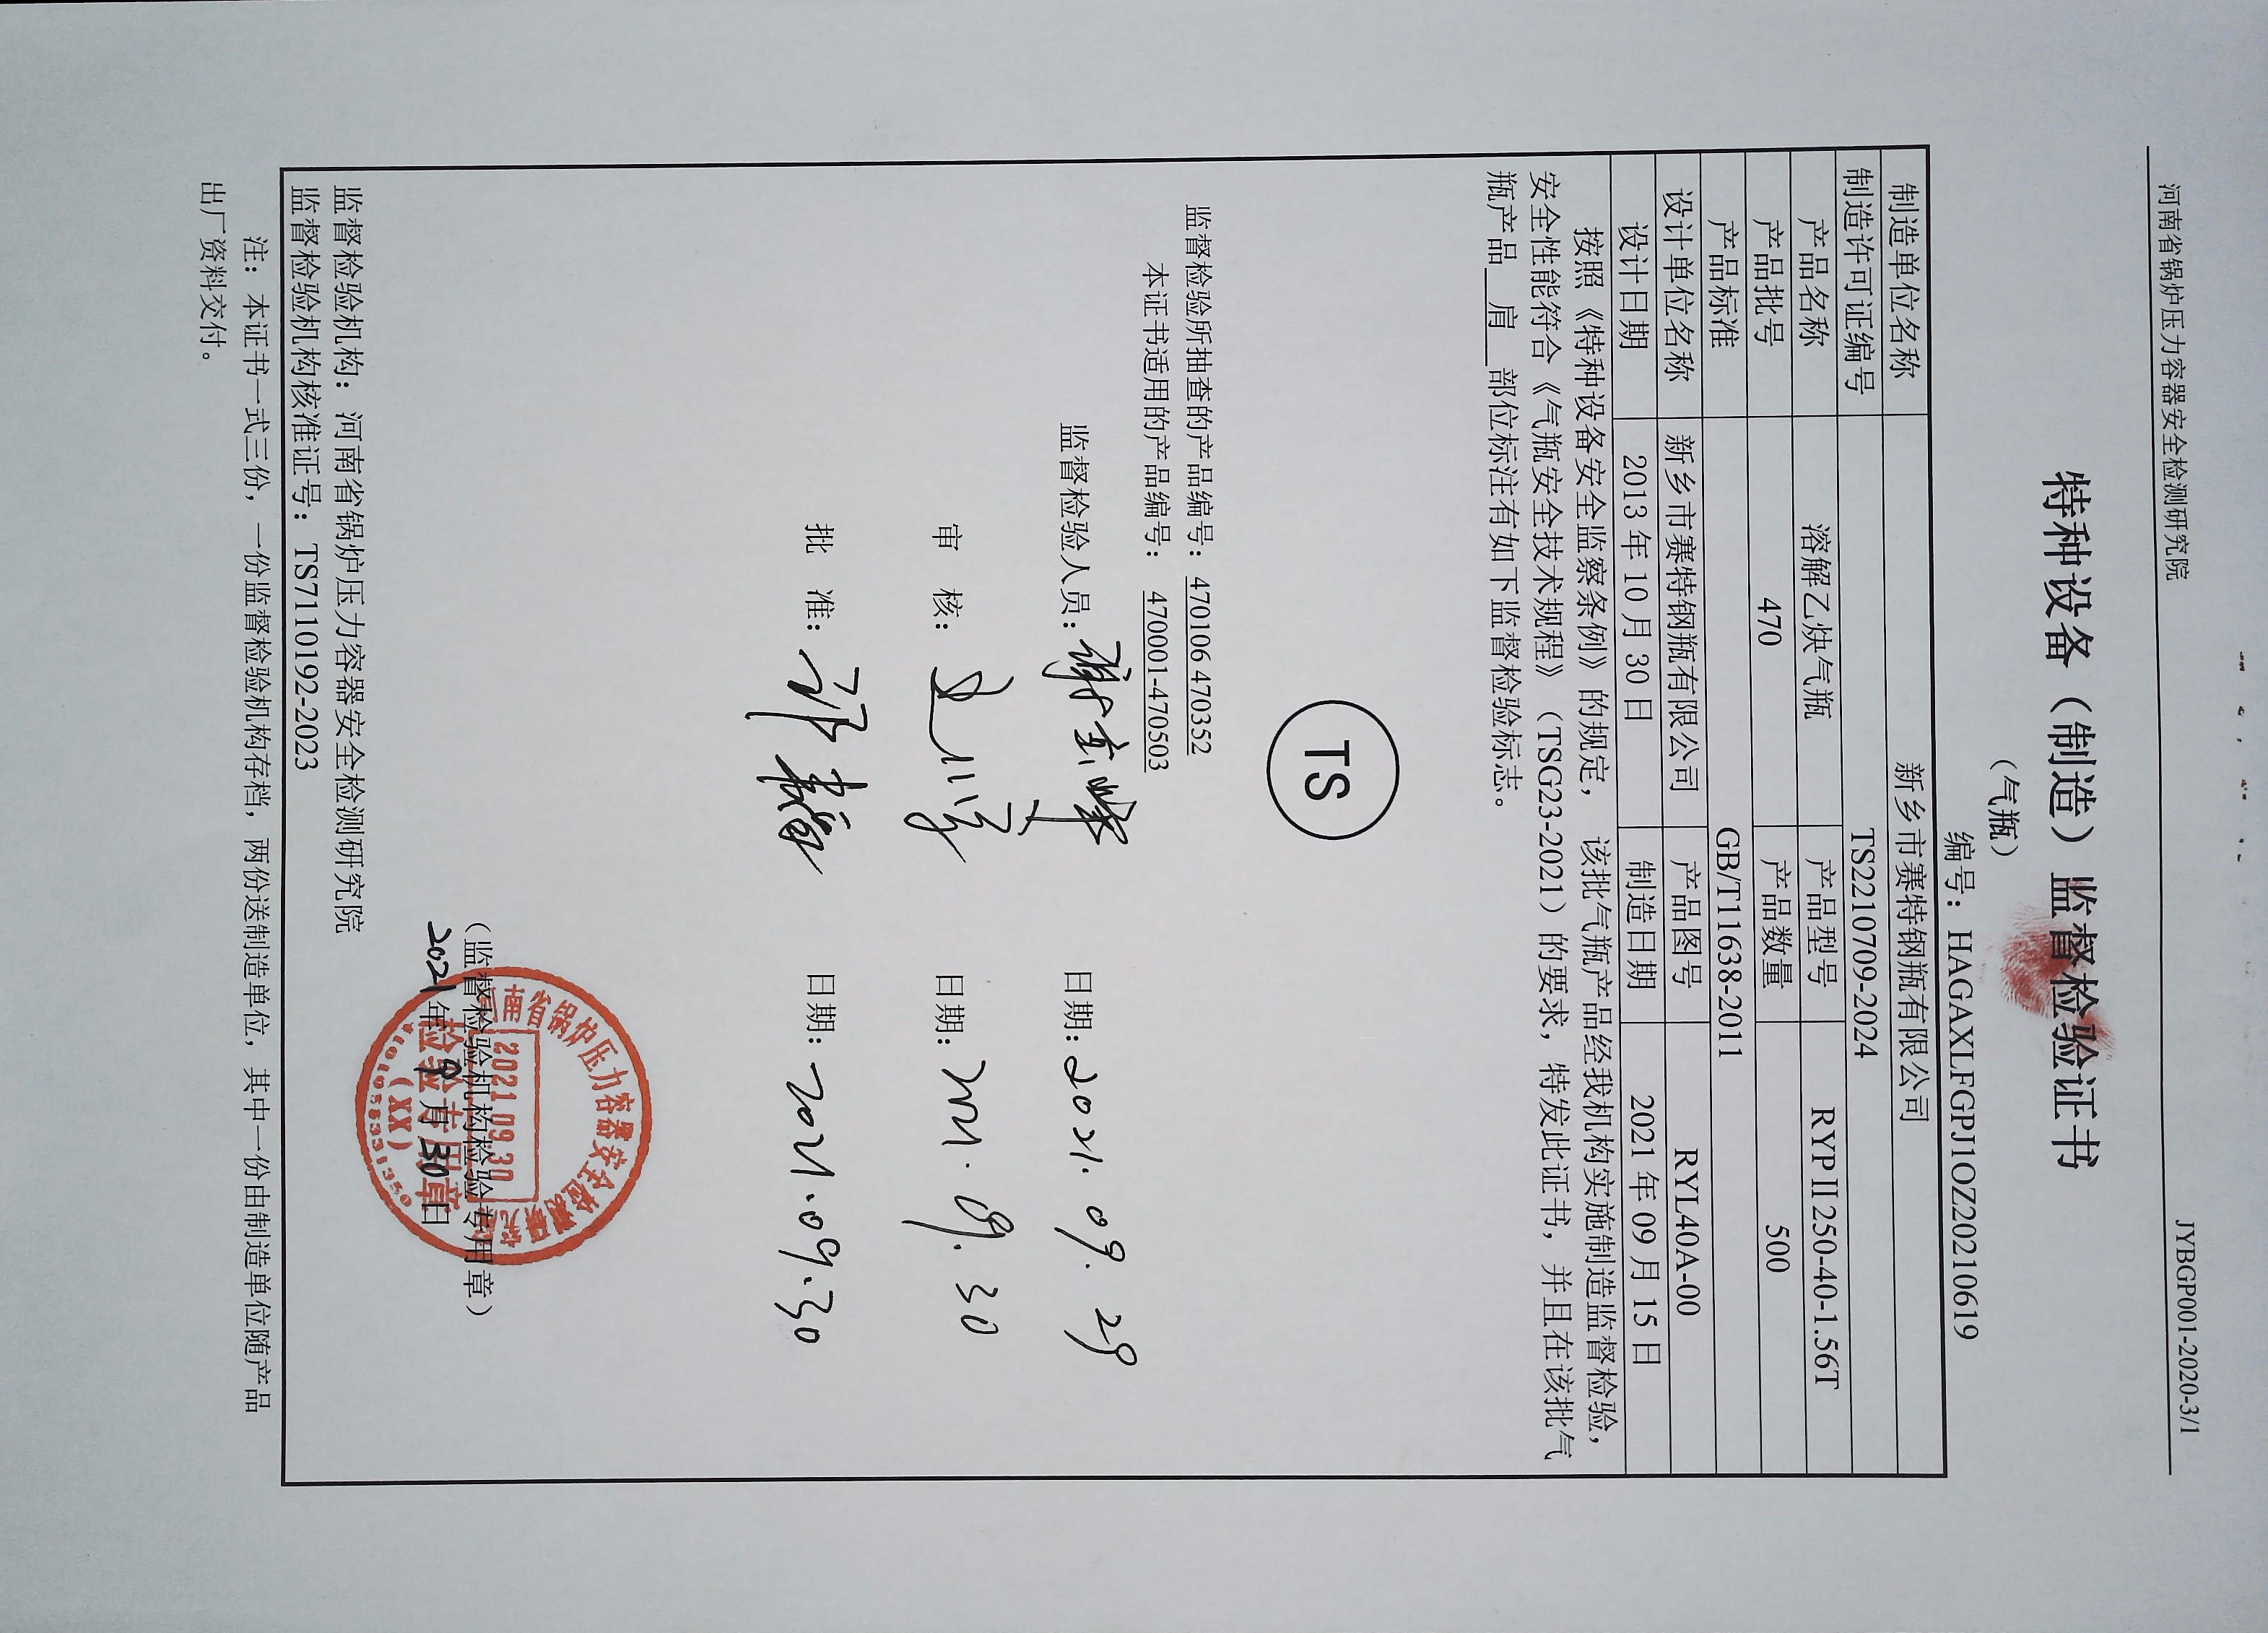 河南省锅炉压力容器安全检测研究院 JYBGP001-2020-3/1
特种设备（制造）监督检验证书
（气瓶）
编号：HAGAXLFGPJ1OZ20210619
制造单位名称 新乡市赛特钢瓶有限公司
制造许可证编号 TS2210709-2024
产品名称 溶解乙炔气瓶 产品型号 RYPⅡ250-40-1.56T
产品批号 470 产品数量 500
产品标准 GB/T11638-2011
设计单位名称 新乡市赛特钢瓶有限公司 产品图号 RYL40A-00
设计日期 2013 年 10 月 30 日 制造日期 2021 年 09 月 15 日
按照《特种设备安全监察条例》的规定，该批气瓶产品经我机构实施制造监督检验，
安全性能符合《气瓶安全技术规程》（TSG23-2021）的要求，特发此证书，并且在该批气
瓶产品 肩 部位标注有如下监督检验标志。
TS
监督检验所抽查的产品编号：470106 470352
本证书适用的产品编号：470001-470503
监督检验人员： 日期：2021.09.29
审 核： 日期：2021.09.30
批 准： 日期：2021.09.30
（监督检验机构检验专用章）
2021年9月30日
河南省锅炉压力容器安全检测研究院
2021 09 30
检验专用章
（XX）
监督检验机构：河南省锅炉压力容器安全检测研究院
监督检验机构核准证号：TS7110192-2023
注：本证书一式三份，一份监督检验机构存档，两份送制造单位，其中一份由制造单位随产品
出厂资料交付。